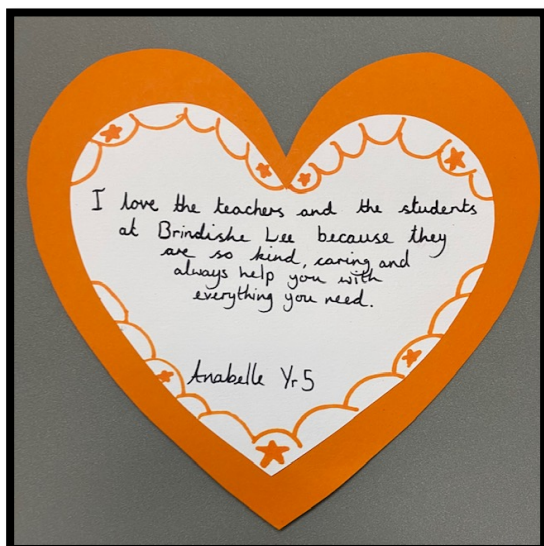 I love the teachers and the students
at Brindishe Lee because they
are so kind, caring and
always help you with
everything you need.
Anabelle Yr 5